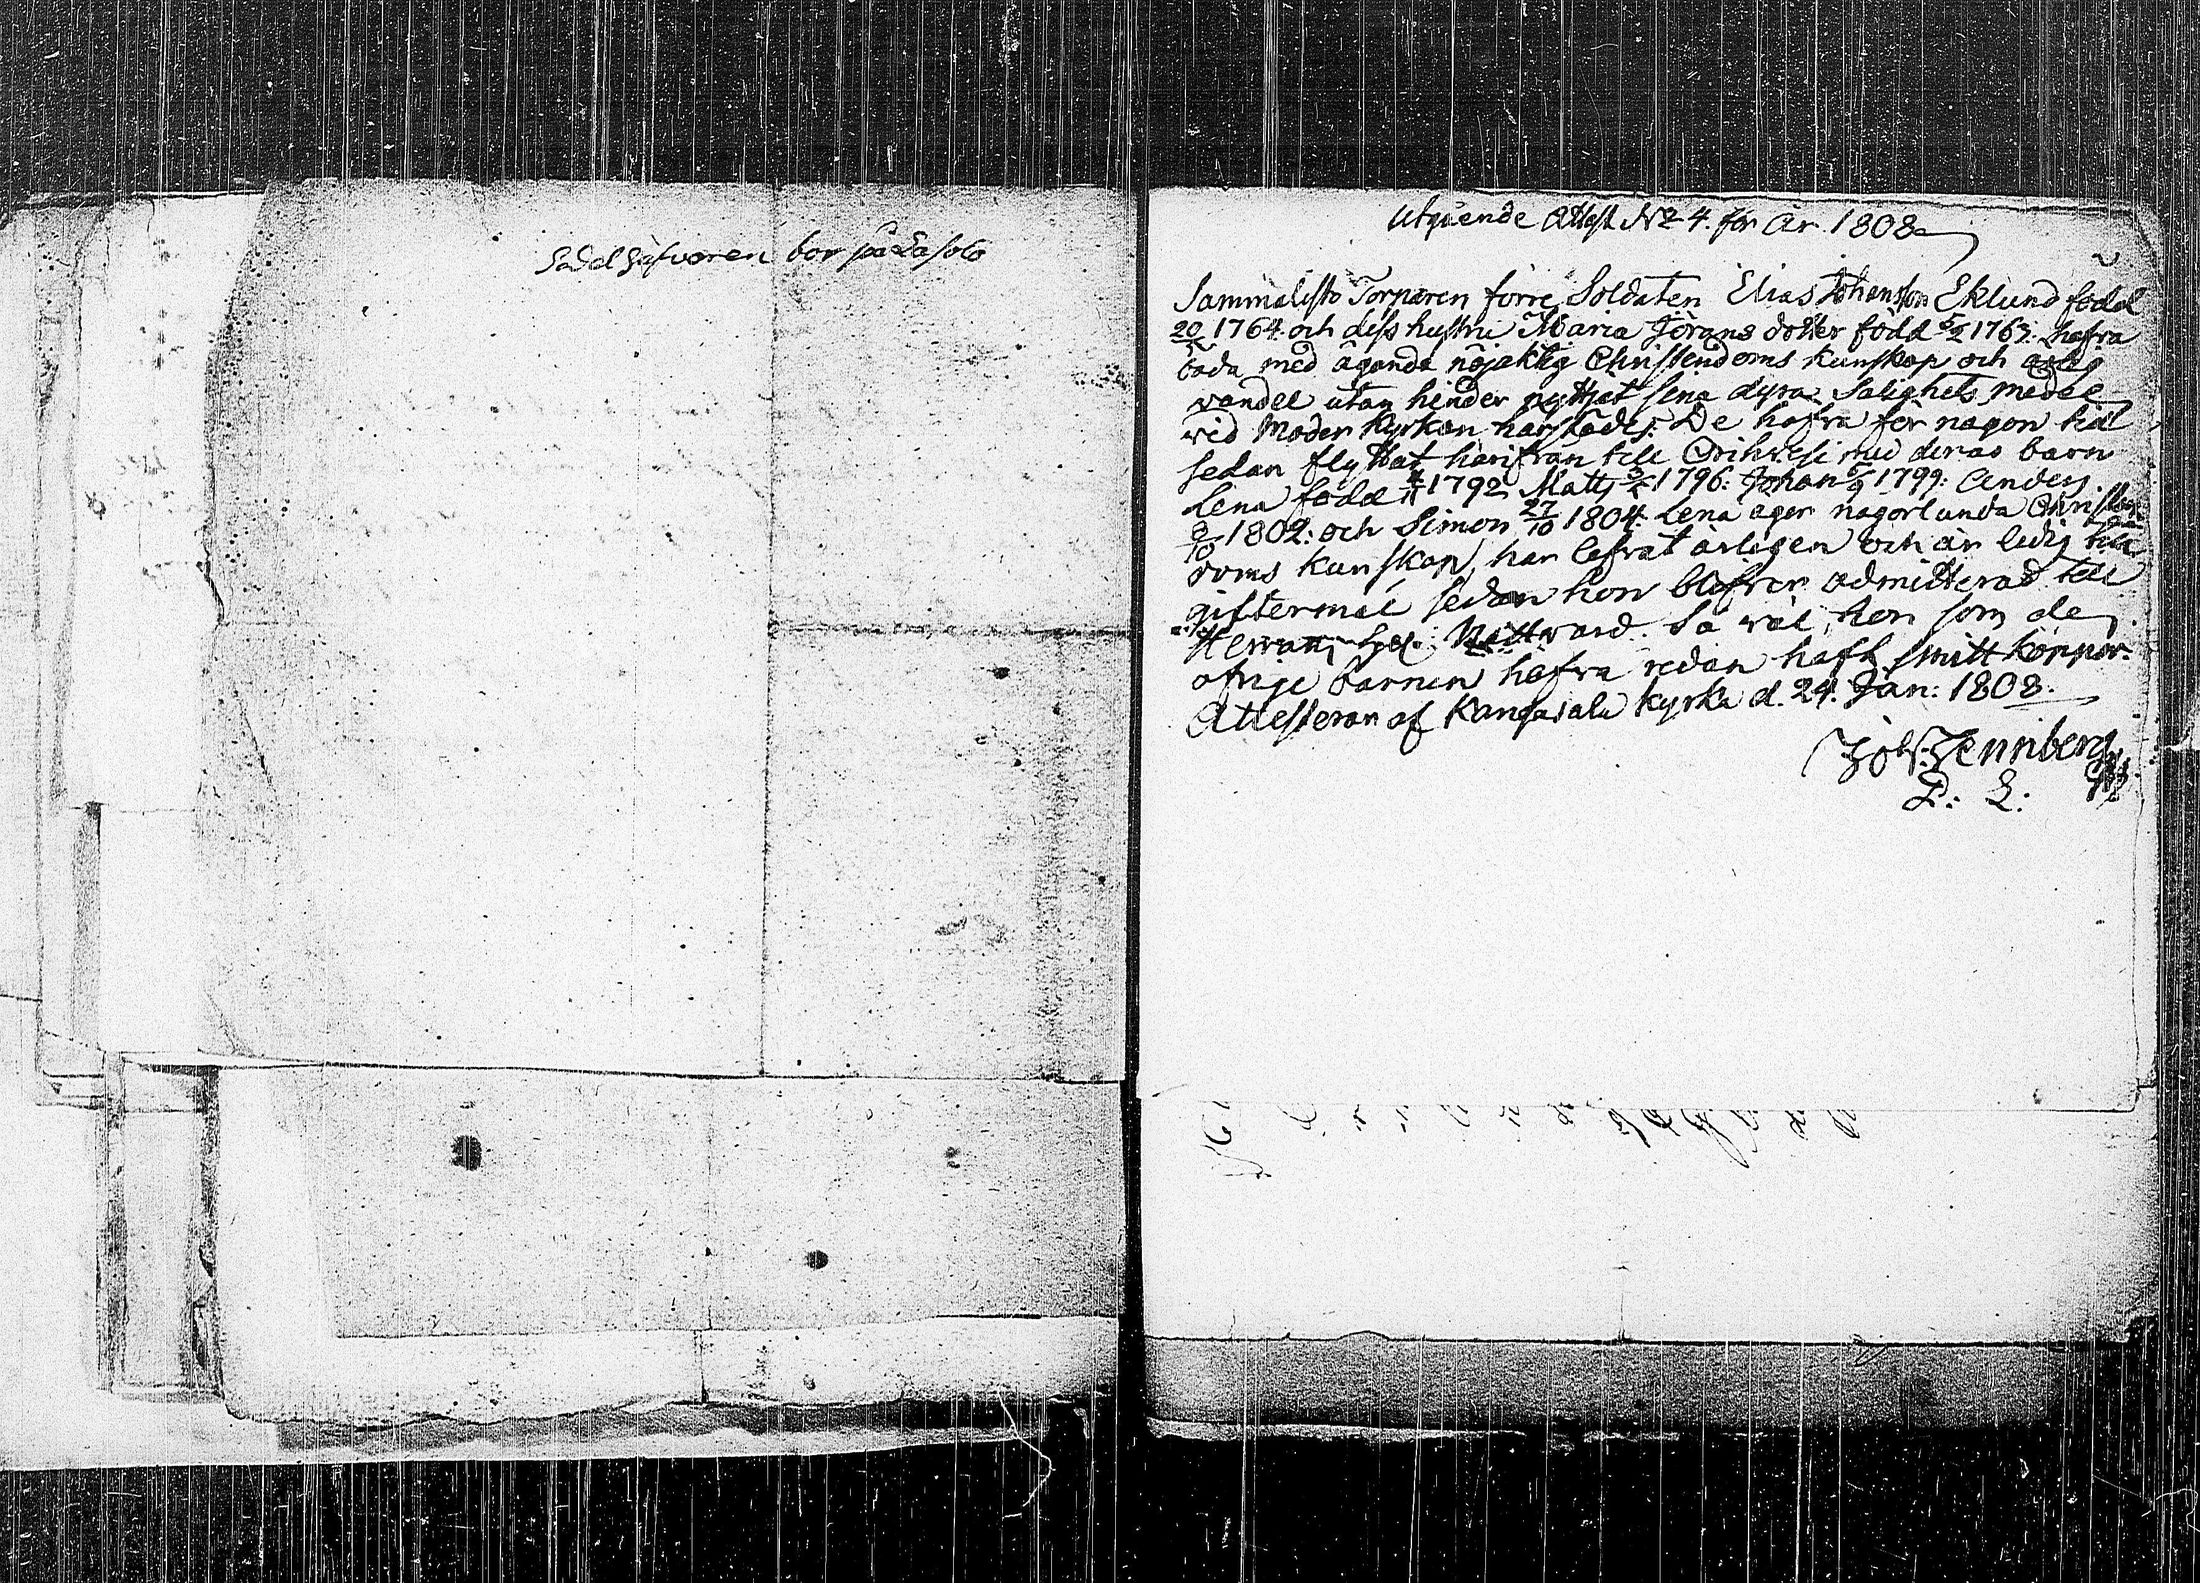 bor på
Utgående Attest No 4. för År 1808.
Sammalisto Torparen förre Soldaten Elias Johansson Eklund född
20 1764. och dess hustru Maria Jörans dotter född 5/2 1763. hafva
båda med ägande nöjaktig Christendoms kunskap och ärlig
vandel utan hinder nyttjat sena dyra Salighets medel
wid Moder Kyrkan härstädes. De hafva för någon tid
sedan flyttat härifrån till Orihvesi med deras barn
Lena född 4/11 1792 Matts 1796. Johan 6/9 1799. Anders
2/10 1802. och Simon 27/10 1804. Lena äger någorlunda Christen-
doms kunskap, har lefvat ärligen och är ledig till
giftermål sedan hon blifver admitterad till
Herrans Nattvard. Så väl hon som de
öfrige barnen hafva redan haft smitt koppor.
Attesteran af Kangasala kyrka d. 24. Jan: 1808.
Joh: Zennberg